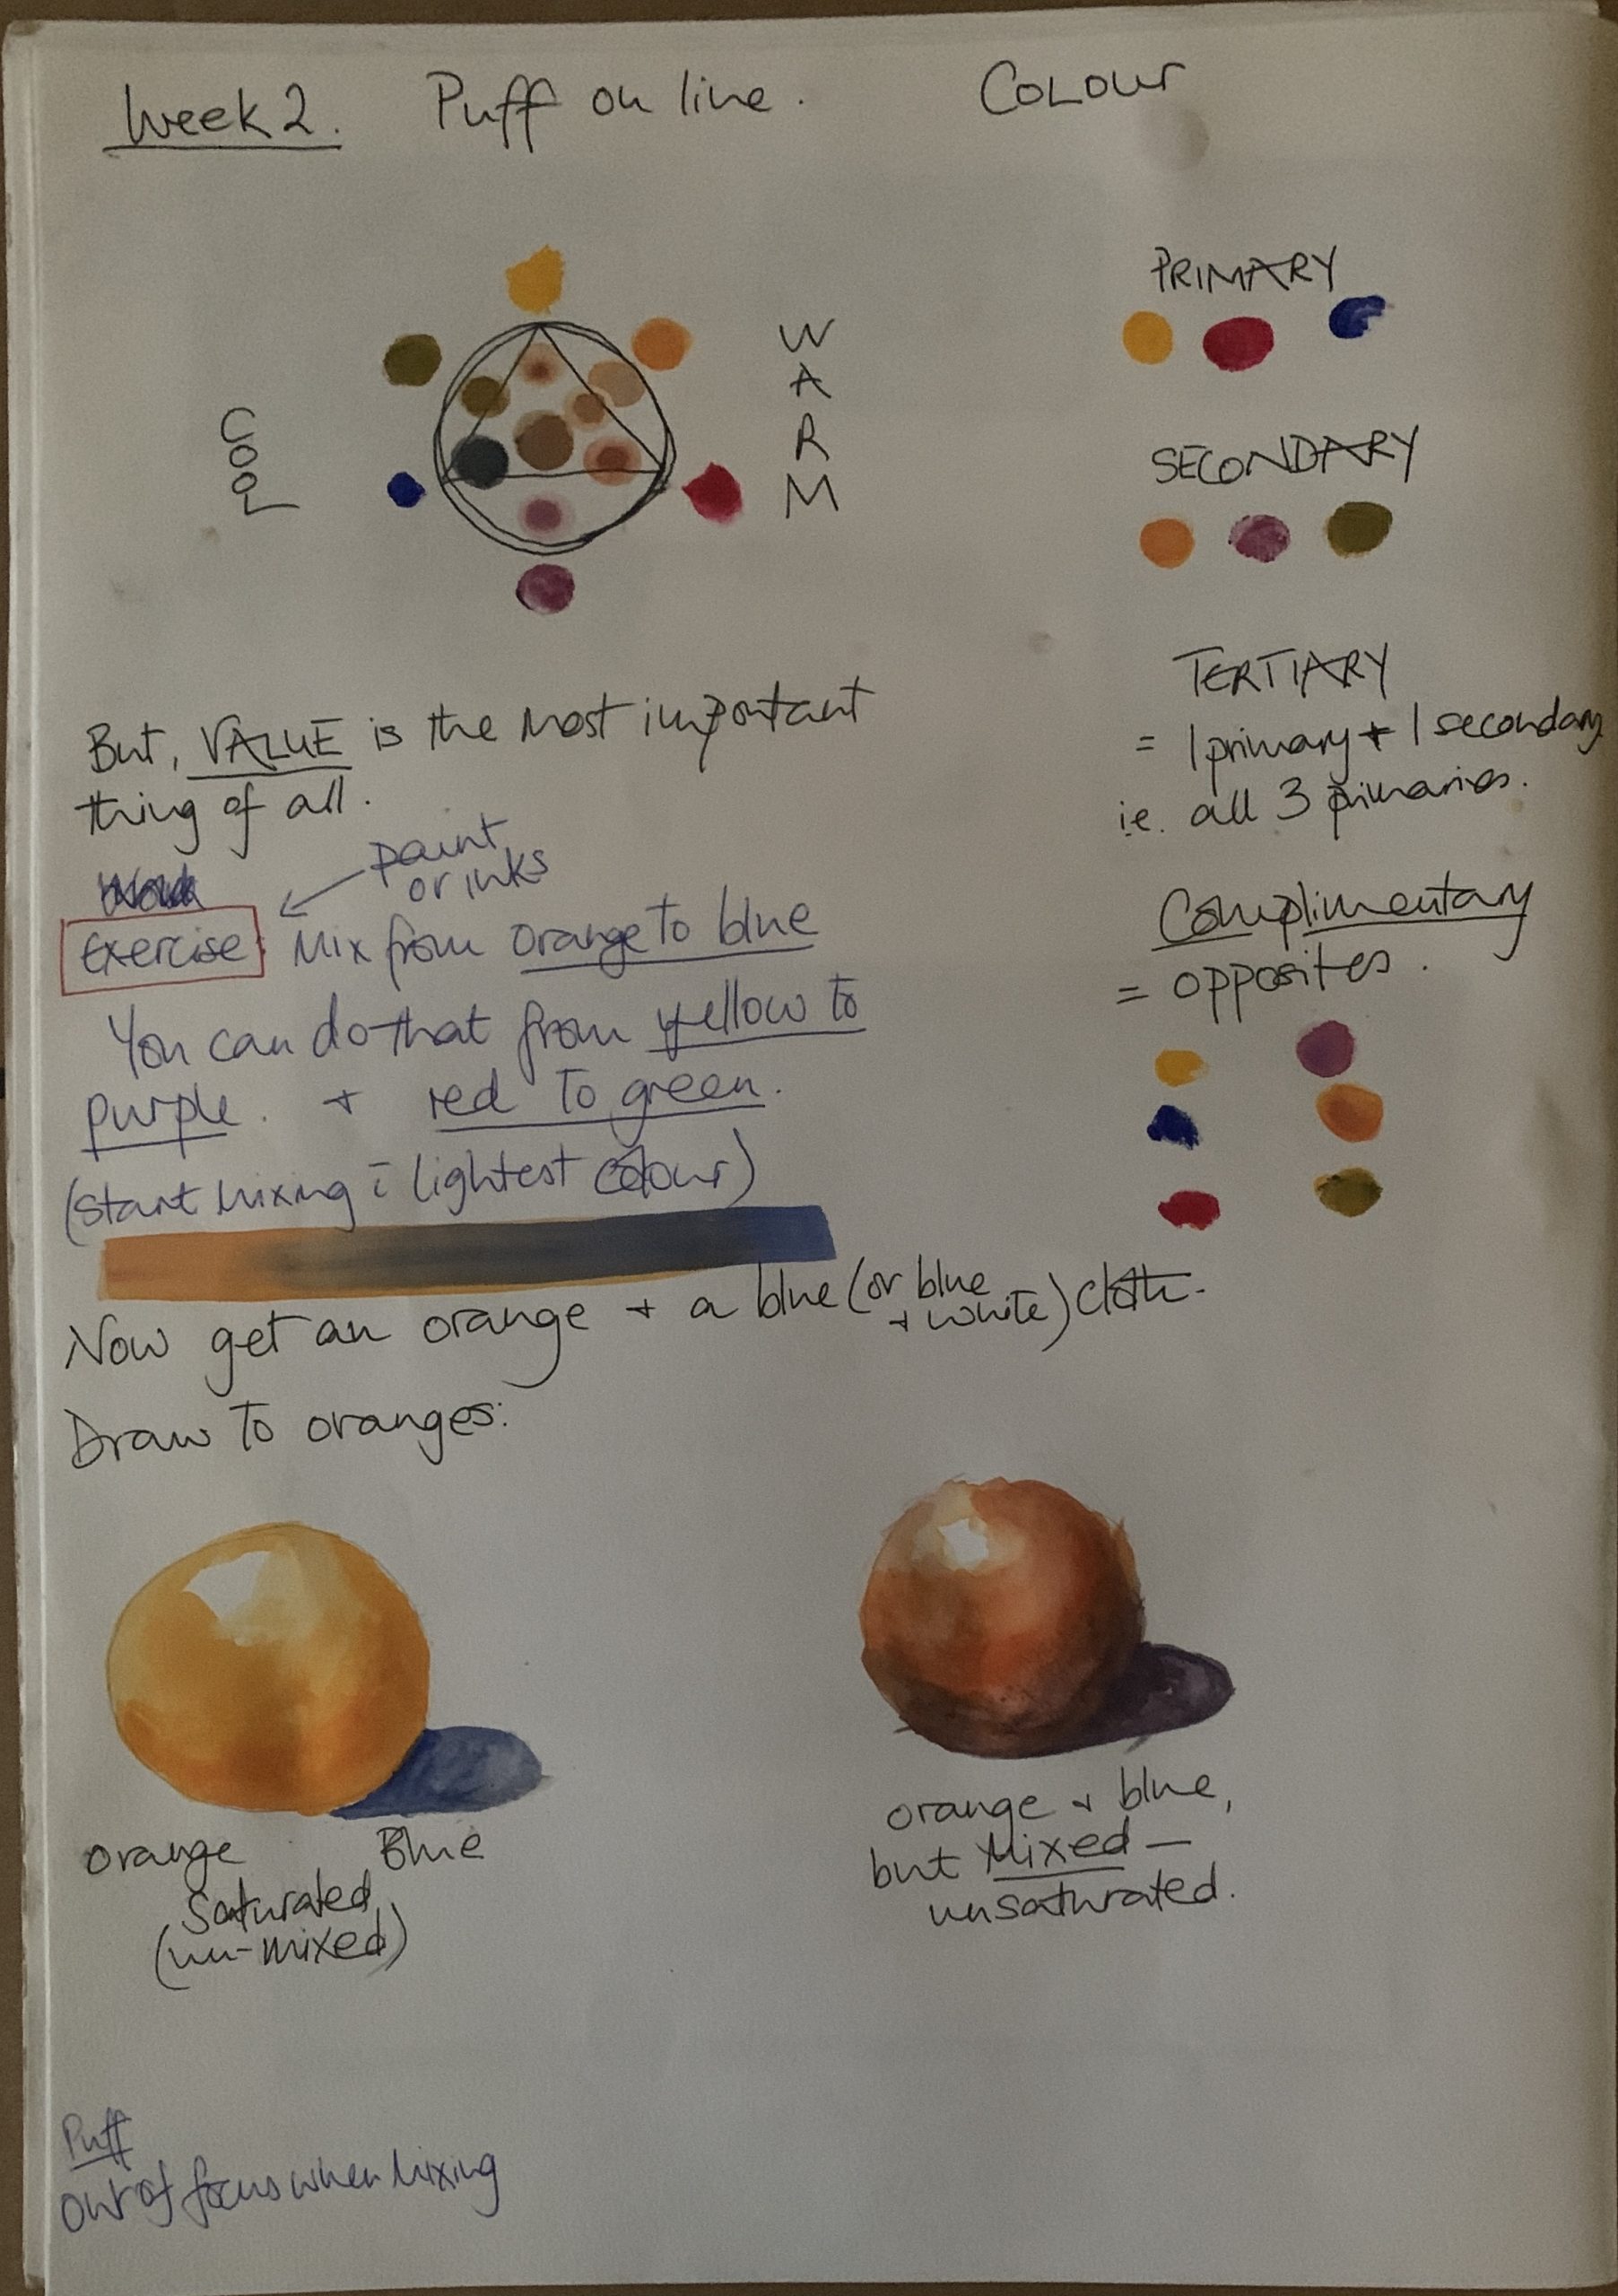 Week 2. Puff on line. COLOUR
COOL
WARM
PRIMARY
SECONDARY
TERTIARY
= 1 primary + 1 secondary
i.e. all 3 primaries.
Complimentary
= opposites.
But, VALUE is the most important
thing of all.
paint
or inks
Exercise: Mix from orange to blue
You can do that from yellow to
purple. + red to green.
(start mixing c̄ lightest colour)
Now get an orange + a blue (or blue
+ white) cloth.
Draw to oranges:
orange Blue
Saturated
(un-mixed)
orange + blue,
but Mixed —
unsaturated.
Puff
out of focus when mixing